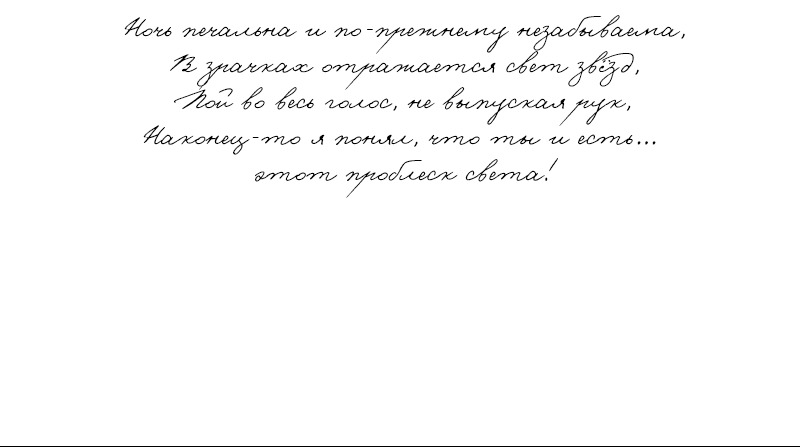 Ночь печальна и по-прежнему незабываема,
В зрачках отражается свет звёзд,
Пой во весь голос, не выпуская рук,
Наконец-то я понял, что ты и есть...
этот проблеск света!